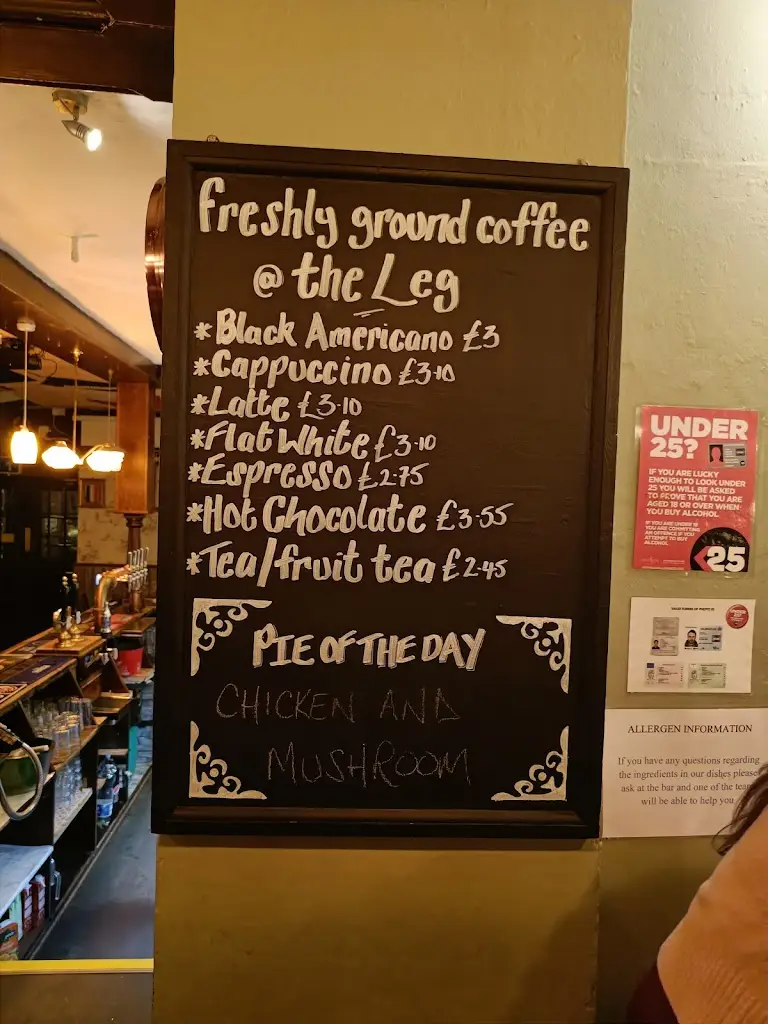 freshly ground coffee
@ the Leg
*Black Americano £3
*Cappuccino £3·10
*Latte £3·10
*Flat White £3·10
*Espresso £2·75
*Hot Chocolate £3·55
*Tea/fruit tea £2·45
PIE OF THE DAY
CHICKEN AND
MUSHROOM
UNDER
25?
IF YOU ARE LUCKY
ENOUGH TO LOOK UNDER
25 YOU WILL BE ASKED
TO PROVE THAT YOU ARE
AGED 18 OR OVER WHEN
YOU BUY ALCOHOL.
IF YOU ARE UNDER 18
YOU ARE COMMITTING
AN OFFENCE IF YOU
ATTEMPT TO BUY
ALCOHOL.
<25
ALLERGEN INFORMATION
If you have any questions regarding
the ingredients in our dishes please
ask at the bar and one of the team
will be able to help you